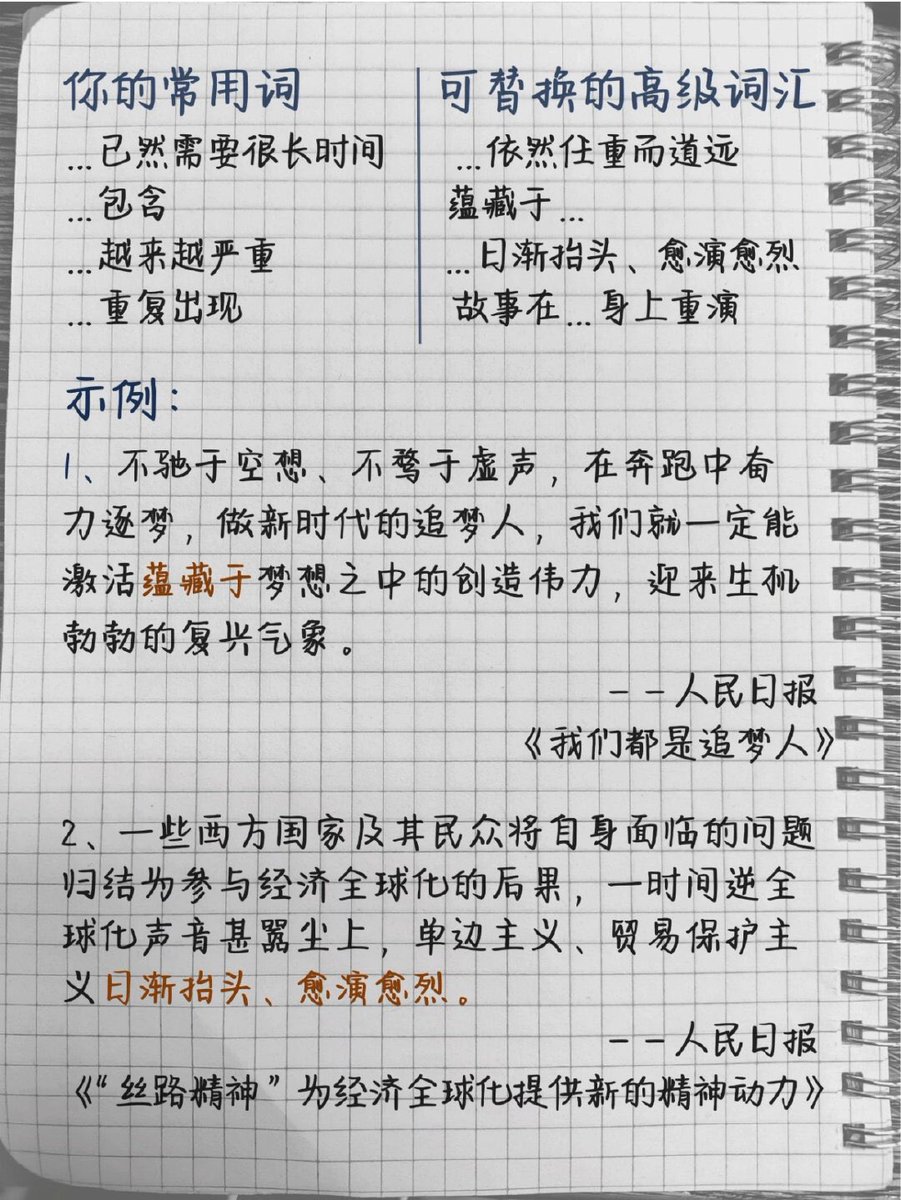 你的常用词
可替换的高级词汇
...已然需要很长时间
...依然任重而道远
...包含
蕴藏于...
...越来越严重
...日渐抬头、愈演愈烈
...重复出现
故事在...身上重演
示例：
1、不驰于空想、不骛于虚声，在奔跑中奋
力逐梦，做新时代的追梦人，我们就一定能
激活蕴藏于梦想之中的创造伟力，迎来生机
勃勃的复兴气象。
--人民日报
《我们都是追梦人》
2、一些西方国家及其民众将自身面临的问题
归结为参与经济全球化的后果，一时间逆全
球化声音甚嚣尘上，单边主义、贸易保护主
义日渐抬头、愈演愈烈。
--人民日报
《“丝路精神”为经济全球化提供新的精神动力》